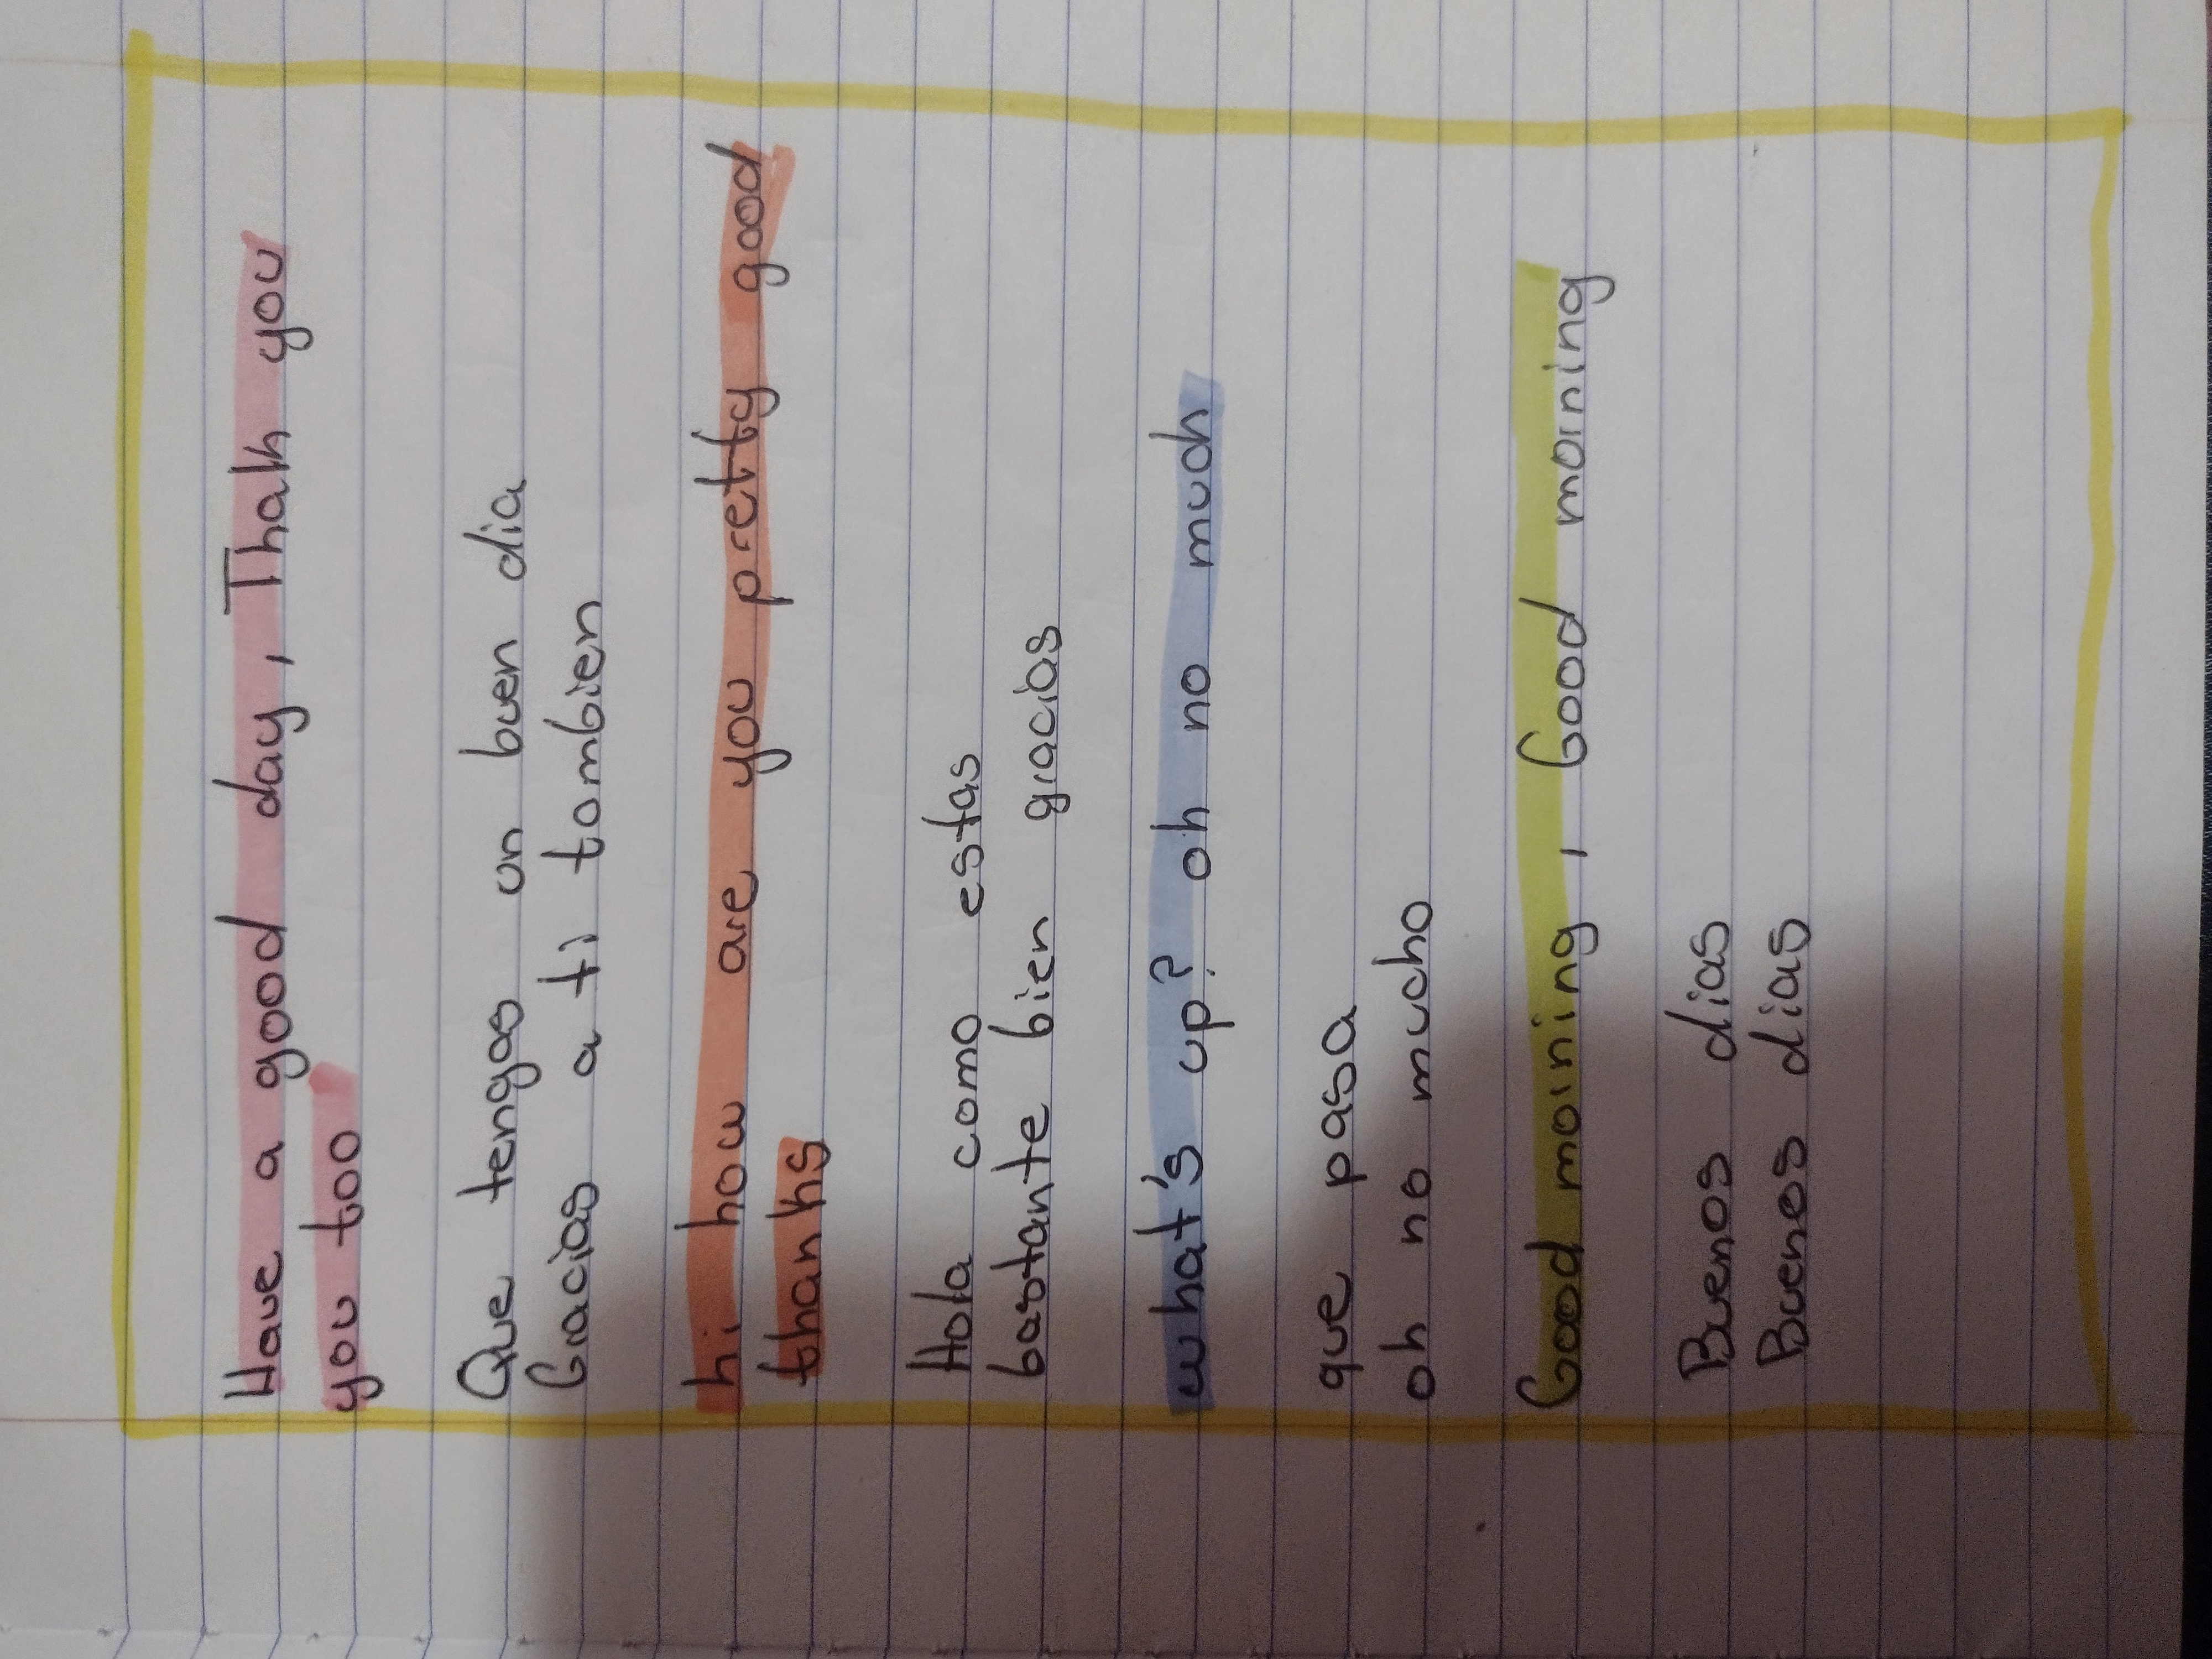 Have a good day, Thank you
you too
Que tengas un buen dia
Gracias a ti tambien
hi how are you pretty good
thanks
Hola como estas
bastante bien gracias
what's up? oh no much
que pasa
oh no mucho
Good morning, Good morning
Buenos dias
Buenos dias